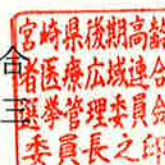 宮崎県後期高齢
者医療広域連合
選挙管理委員会
委員長之印
合
三